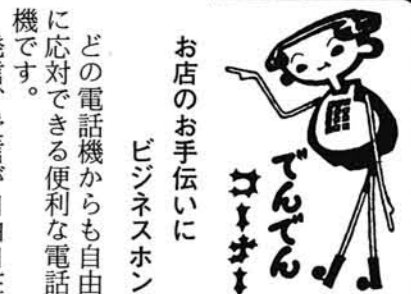 でんでん
コーナー
お店のお手伝いに
ビジネスホン
どの電話機からも自由
に応対できる便利な電話
機です。